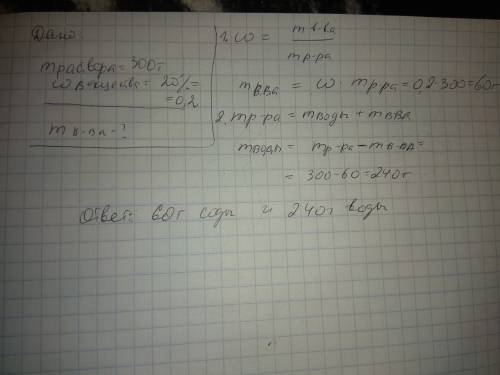 Дано:
m раствора = 300г
ω в-ещества = 20% =
= 0,2
m в-ва - ?
1. ω = m в-ва
m р-ра
m в.ва = ω · m р.ра = 0,2 · 300 = 60г
2. m р-ра = m воды + m в.ва
m воды = m р-ра - m в-ва =
= 300 - 60 = 240г
Ответ: 60г соды и 240г воды